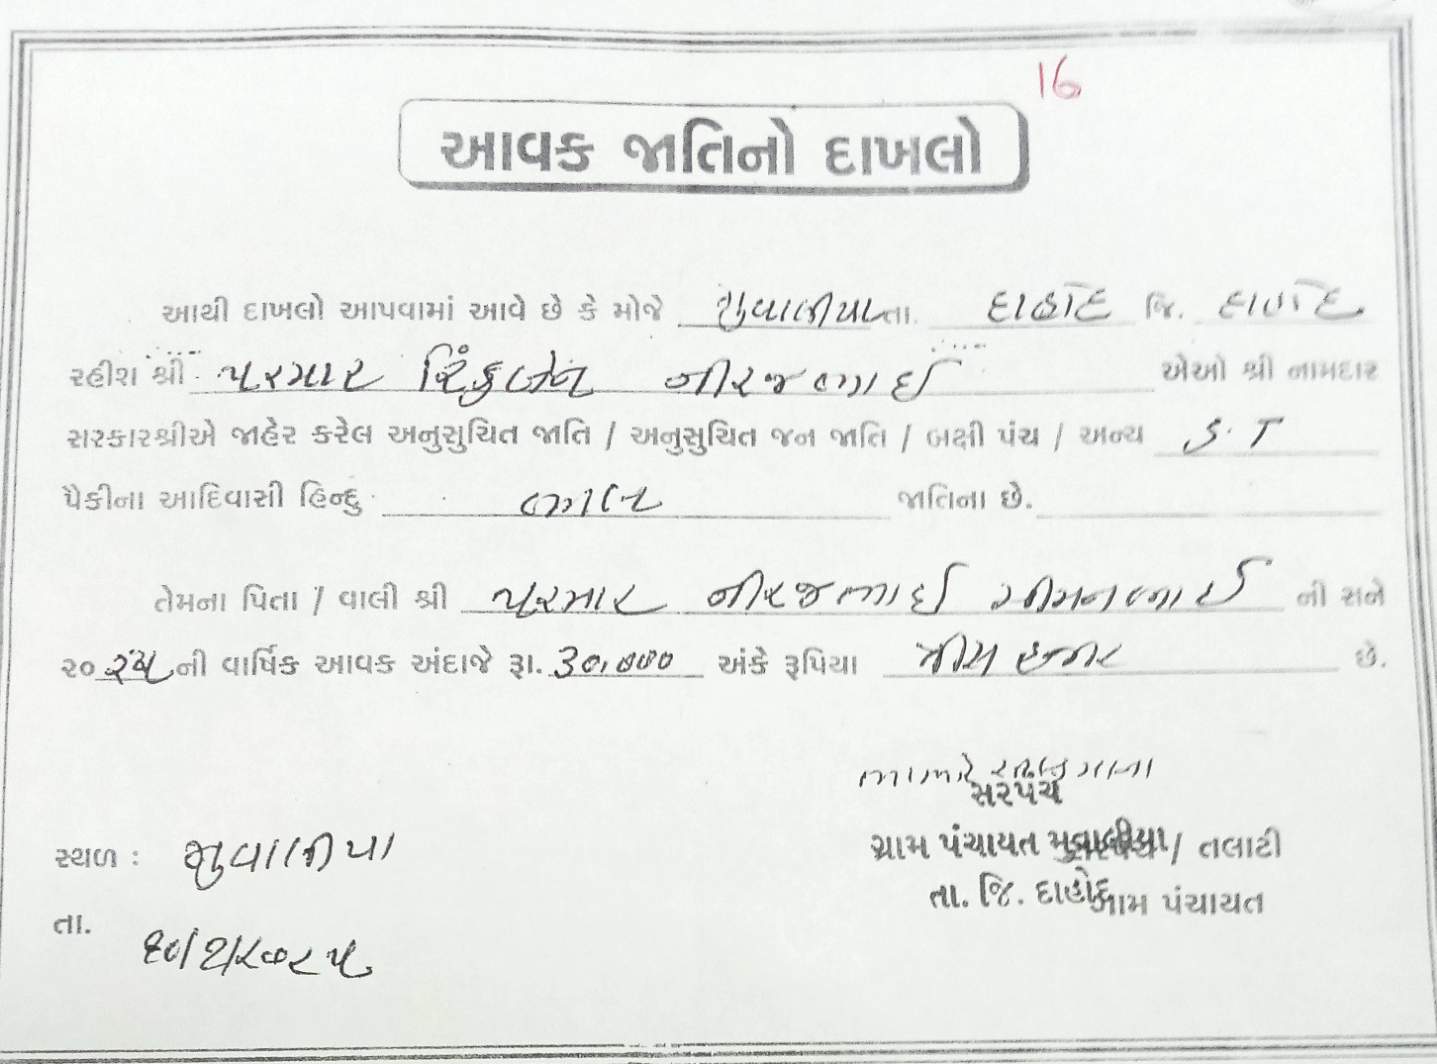 16
આવક જાતિનો દાખલો
આથી દાખલો આપવામાં આવે છે કે મોજે મુવાલીયા તા. દાહોદ જિ. દાહોદ
રહીશ શ્રી પરમાર રિંકુબેન નીરજભાઈ એઓ શ્રી નામદાર
સરકારશ્રીએ જાહેર કરેલ અનુસુચિત જાતિ / અનુસુચિત જન જાતિ / બક્ષી પંચ / અન્ય S.T
પૈકીના આદિવાસી હિન્દુ ભીલ જાતિના છે.
તેમના પિતા / વાલી શ્રી પરમાર નીરજભાઈ ની સને
૨૦૨૫ ની વાર્ષિક આવક અંદાજે રૂા. ૩૦,૦૦૦ અંકે રૂપિયા ત્રીસ હજાર છે.
સરપંચ
ગ્રામ પંચાયત મુવાલીયા / તલાટી
તા. જિ. દાહોદ ગ્રામ પંચાયત
સ્થળ : મુવાલીયા
તા.